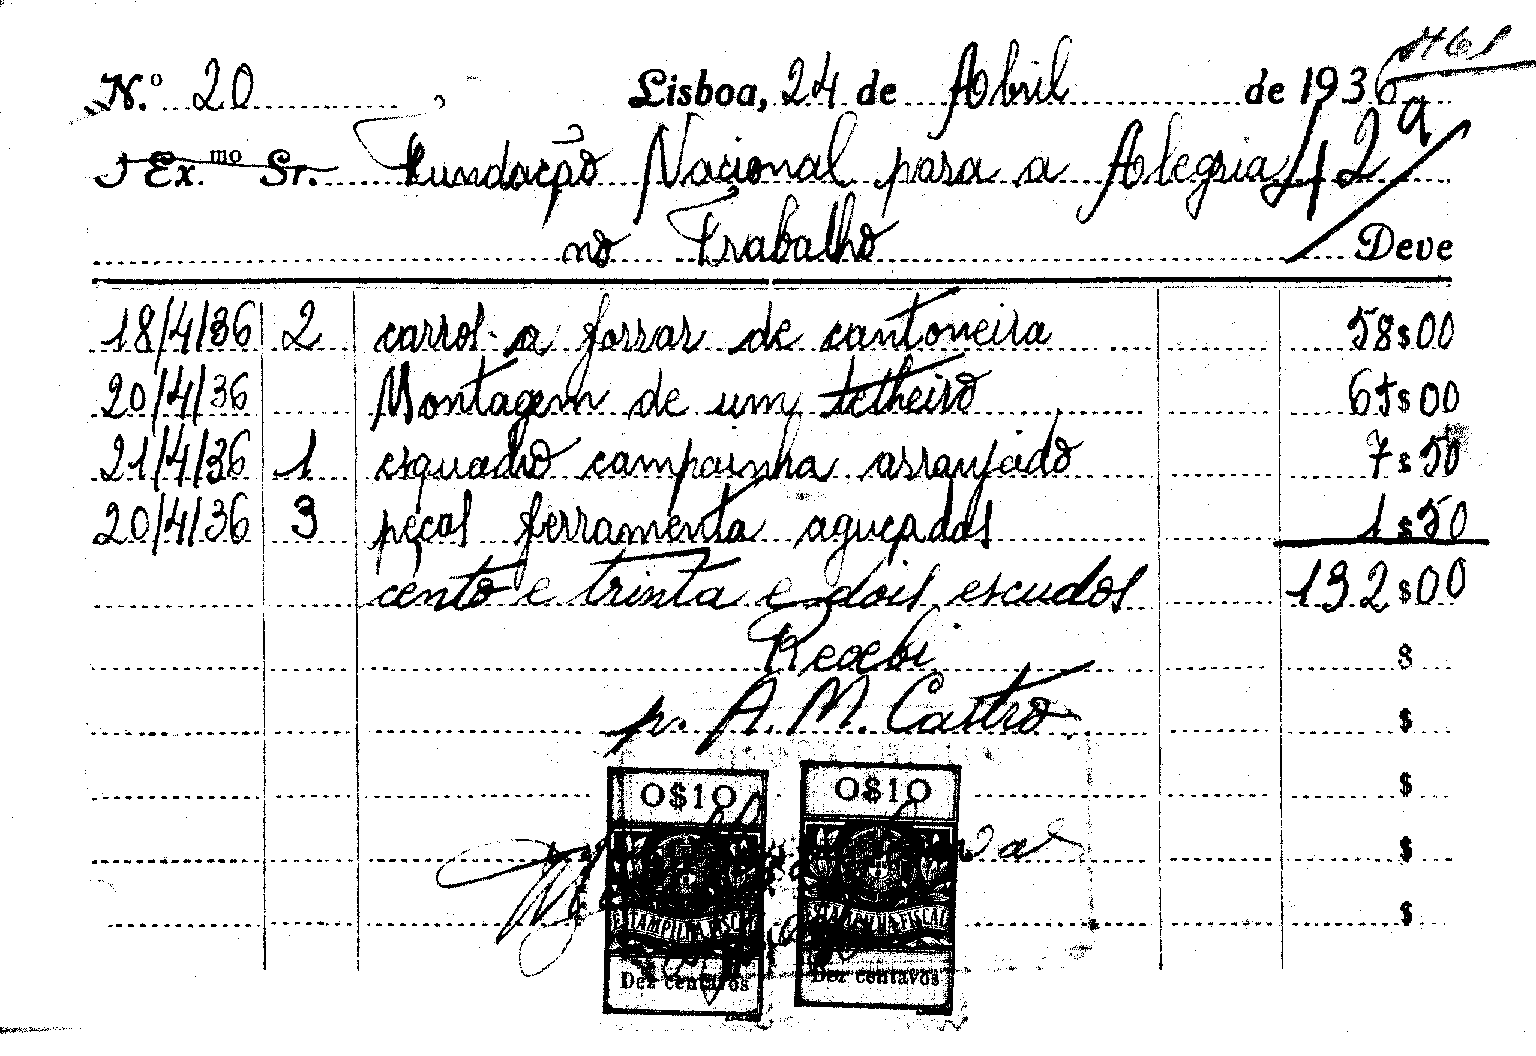 N.º 20 Lisboa, 24 de Abril de 1936
Ex.mo Sr. Fundação Nacional para a Alegria 42
no Trabalho Deve
18/4/36 2 carros a forrar de cantoneira 58$00
20/4/36 Montagem de um telheiro 65$00
21/4/36 1 esquadro campainha arranjado 7$50
20/4/36 3 peças ferramenta aguçadas 1$50
cento e trinta e dois escudos 132$00
Recebi $
p. A. M. Castro $
$
$
$
0$10 0$10
ESTAMPILHA FISCAL ESTAMPILHA FISCAL
Dez centavos Dez centavos